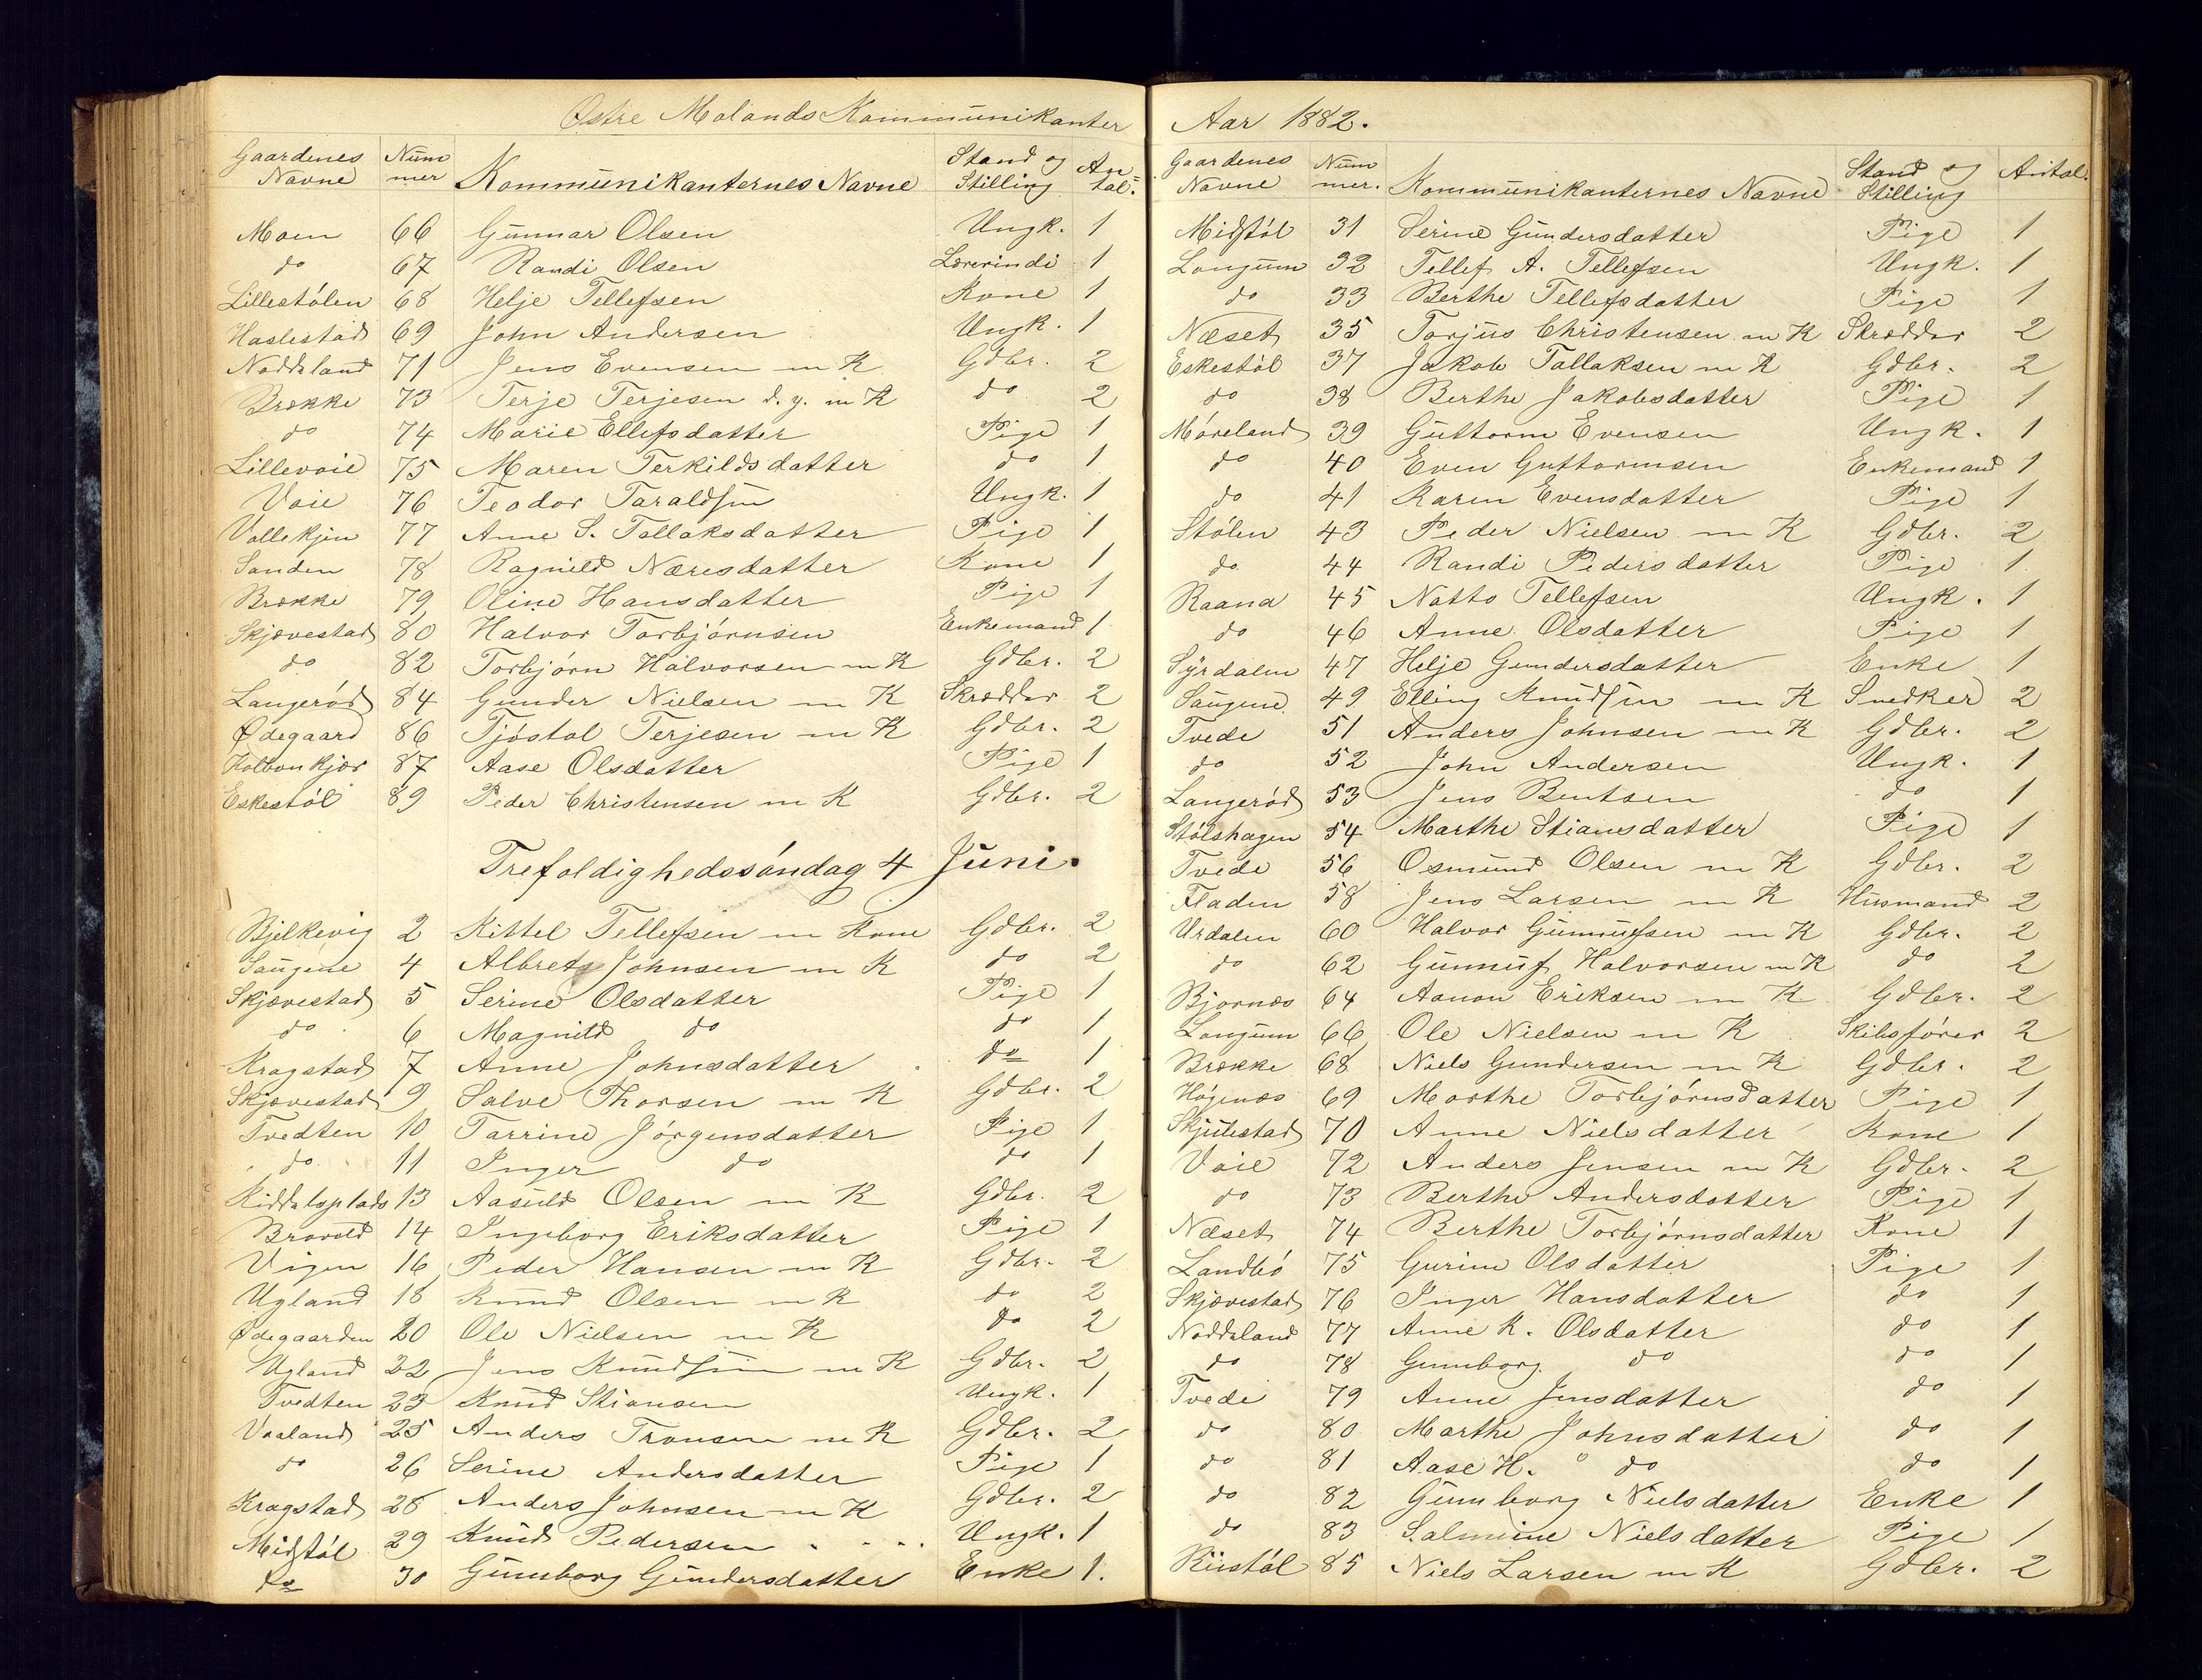 Østre Molands Kommunikanter
Gaardenes Navne Nummer Kommunikanternes Navne Stand og Stilling Antal:
Moen 66 Gunnar Olsen Ungk. 1
do 67 Randi Olsen Lærerindi 1
Lillestölen 68 Helje Tellefsen Kone 1
Haslestad 69 John Andersen Ungk. 1
Noddeland 71 Jens Evensen m K Gdbr. 2
Brække 73 Terje Terjesen d. y. m K do 2
do 74 Marie Ellefsdatter Pige 1
Lillevaie 75 Maren Terkildsdatter do 1
Vaie 76 Teodor Taraldsen Ungk. 1
Vallekjen 77 Anne S. Tallaksdatter Pige 1
Sanden 78 Ragnild Næresdatter Kone 1
Brække 79 Oline Hansdatter Pige 1
Skjævestad 80 Halvor Torbjörnsen Enkemand 1
do 82 Torbjörn Halvorsen m K Gdbr. 2
Langeröd 84 Gunder Nielsen m K Skrædder 2
Ødegaard 86 Tjöstol Terjesen m K Gdbr. 2
87 Aase Olsdatter Pige 1
Eskestöl 89 Peder Christensen m K Gdbr. 2
Trefoldighedssöndag 4 Juni.
Bjelkevig 2 Kittel Tellefsen m Kone Gdbr. 2
Saugene 4 Albret Johnsen m K do 2
Skjævestad 5 Serine Olsdatter Pige 1
do 6 Magnild do do 1
Kragstad 7 Anne Johnsdatter do 1
Skjævestad 9 Salve Thorsen m K Gdbr. 2
Tvedten 10 Tarrine Jörgensdatter Pige 1
do 11 Inger do do 1
Kiddalsplads 13 Aasuld Olsen m K Gdbr. 2
Bravold 14 Ingeborg Eriksdatter Pige 1
Vigen 16 Peder Hansen m K Gdbr. 2
Ugland 18 Knud Olsen m K do 2
Ødegaarden 20 Ole Nielsen m K do 2
Ugland 22 Jens Knudsen m K Gdbr. 2
Tvedten 23 Knud Stiansen Ungk. 1
Vaaland 25 Anders Tronsen m K Gdbr. 2
do 26 Serine Andersdatter Pige 1
Kragstad 28 Anders Johnsen m K Gdbr. 2
Midstöl 29 Knud Pedersen Ungk. 1
do 30 Gunnborg Gundersdatter Enke 1.
Aar 1882.
Gaardenes Navne Nummer. Kommunikanternes Navne Stand og Stilling Antal.
Midstöl 31 Serine Gundersdatter Pige 1
Longum 32 Tellef A. Tellefsen Ungk. 1
do 33 Berthe Tellefsdatter Pige 1
Næset 35 Torjus Christensen m K Skrædder 2
Eskestöl 37 Jakob Tallaksen m K Gdbr. 2
do 38 Berthe Jakobsdatter Pige 1
Möreland 39 Guttorm Evensen Ungk. 1
do 40 Even Guttormsen Enkemand 1
do 41 Karen Evensdatter Pige 1
Stölen 43 Peder Nielsen m K Gdbr. 2
do 44 Randi Pedersdatter Pige 1
Raana 45 Natto Tellefsen Ungk. 1
do 46 Anne Olsdatter Pige 1
Syrdalen 47 Helje Gundersdatter Enke 1
Saugene 49 Elling Knudsen m K Snedker 2
Tvede 51 Anders Johnsen m K Gdbr. 2
do 52 John Andersen Ungk. 1
Langeröd 53 Jens Bentsen do 1
Stölshagen 54 Marthe Stiansdatter Pige 1
Tvede 56 Osmund Olsen m K Gdbr. 2
Fladen 58 Jens Larsen m K Husmand 2
Urdalen 60 Halvor Gunnufsen m K Gdbr. 2
do 62 Gunnuf Halvorsen m K do 2
Bjornæs 64 Aanon Eriksen m K Gdbr. 2
Longum 66 Ole Nielsen m K Skibsförer 2
Brække 68 Niels Gundersen m K Gdbr. 2
Högenæs 69 Marthe Torbjörnsdatter Pige 1
Skjulestad 70 Anne Nielsdatter Kone 1
Vaie 72 Anders Jensen m K Gdbr. 2
do 73 Berthe Andersdatter Pige 1
Næset 74 Berthe Torbjörnsdatter Kone 1
Landbö 75 Gurine Olsdatter Pige 1
Skjævestad 76 Inger Hansdatter do 1
Noddeland 77 Anne K. Olsdatter do 1
do 78 Gunnborg do do 1
Tvede 79 Anne Jensdatter do 1
do 80 Marthe Johnsdatter do 1
do 81 Aase H. " do do 1
do 82 Gunnborg Nielsdatter Enke 1
do 83 Salmine Nielsdatter Pige 1
Riistöl 85 Niels Larsen m K Gdbr. 2